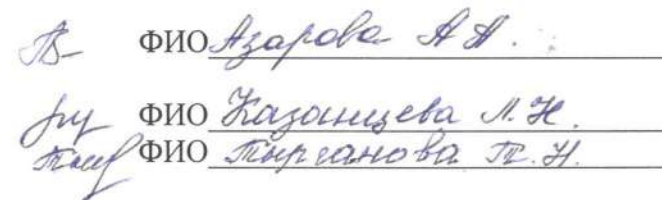 ФИО Азарова А А.
ФИО Казанцева Л. Н.
ФИО Тырганова Т. Н.